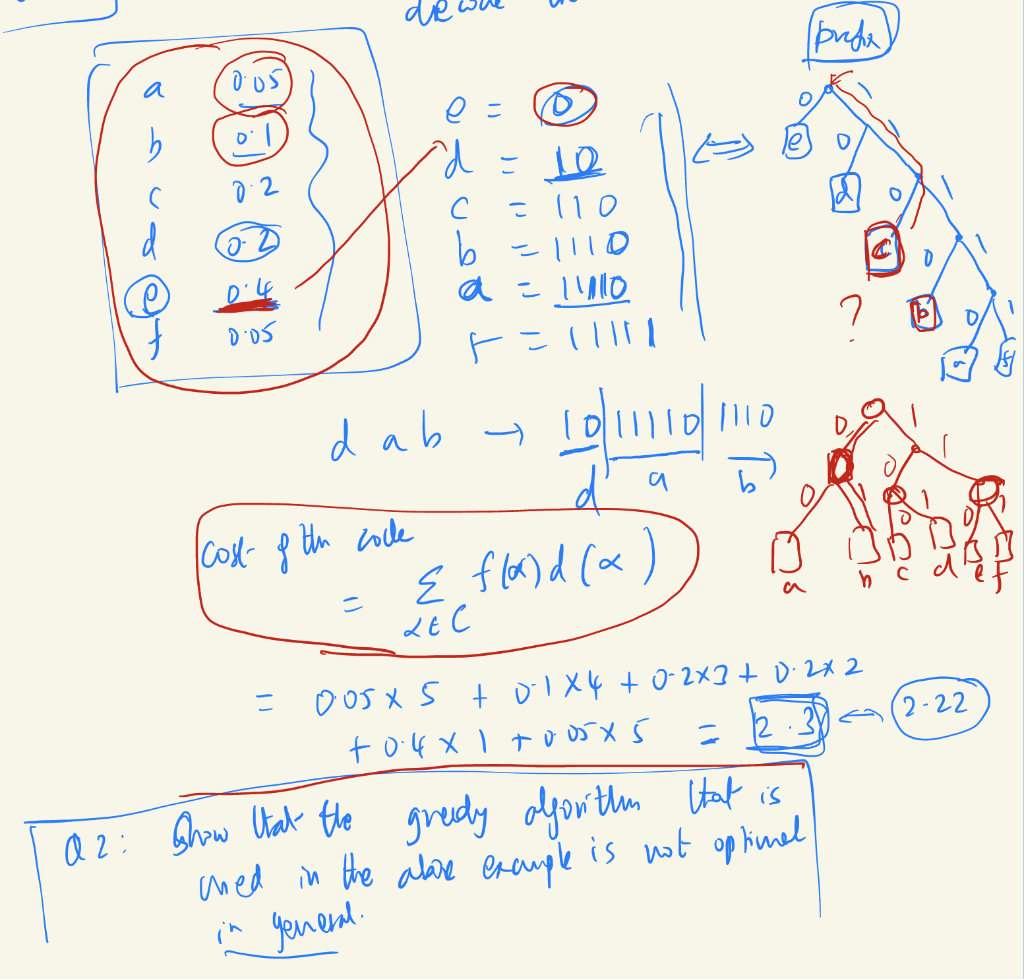 decode
prefix
a 0.05
b 0.1
c 0.2
d 0.2
e 0.4
f 0.05
e = 0
d = 10
c = 110
b = 1110
a = 11110
f = 11111
⇔
0 1
e 0 1
d 0 1
c 0 1
b 0 1
a f
?
d a b → 10|11110|1110
d a b
0 1
0 1 0 1
0 1 0 1
a b c d e f
Cost of the code
= Σ f(α) d(α)
α ∈ C
= 0.05 × 5 + 0.1 × 4 + 0.2 × 3 + 0.2 × 2
+ 0.4 × 1 + 0.05 × 5 = 2.3 ↔ 2.22
Q2: Show that the greedy algorithm that is
used in the above example is not optimal
in general.